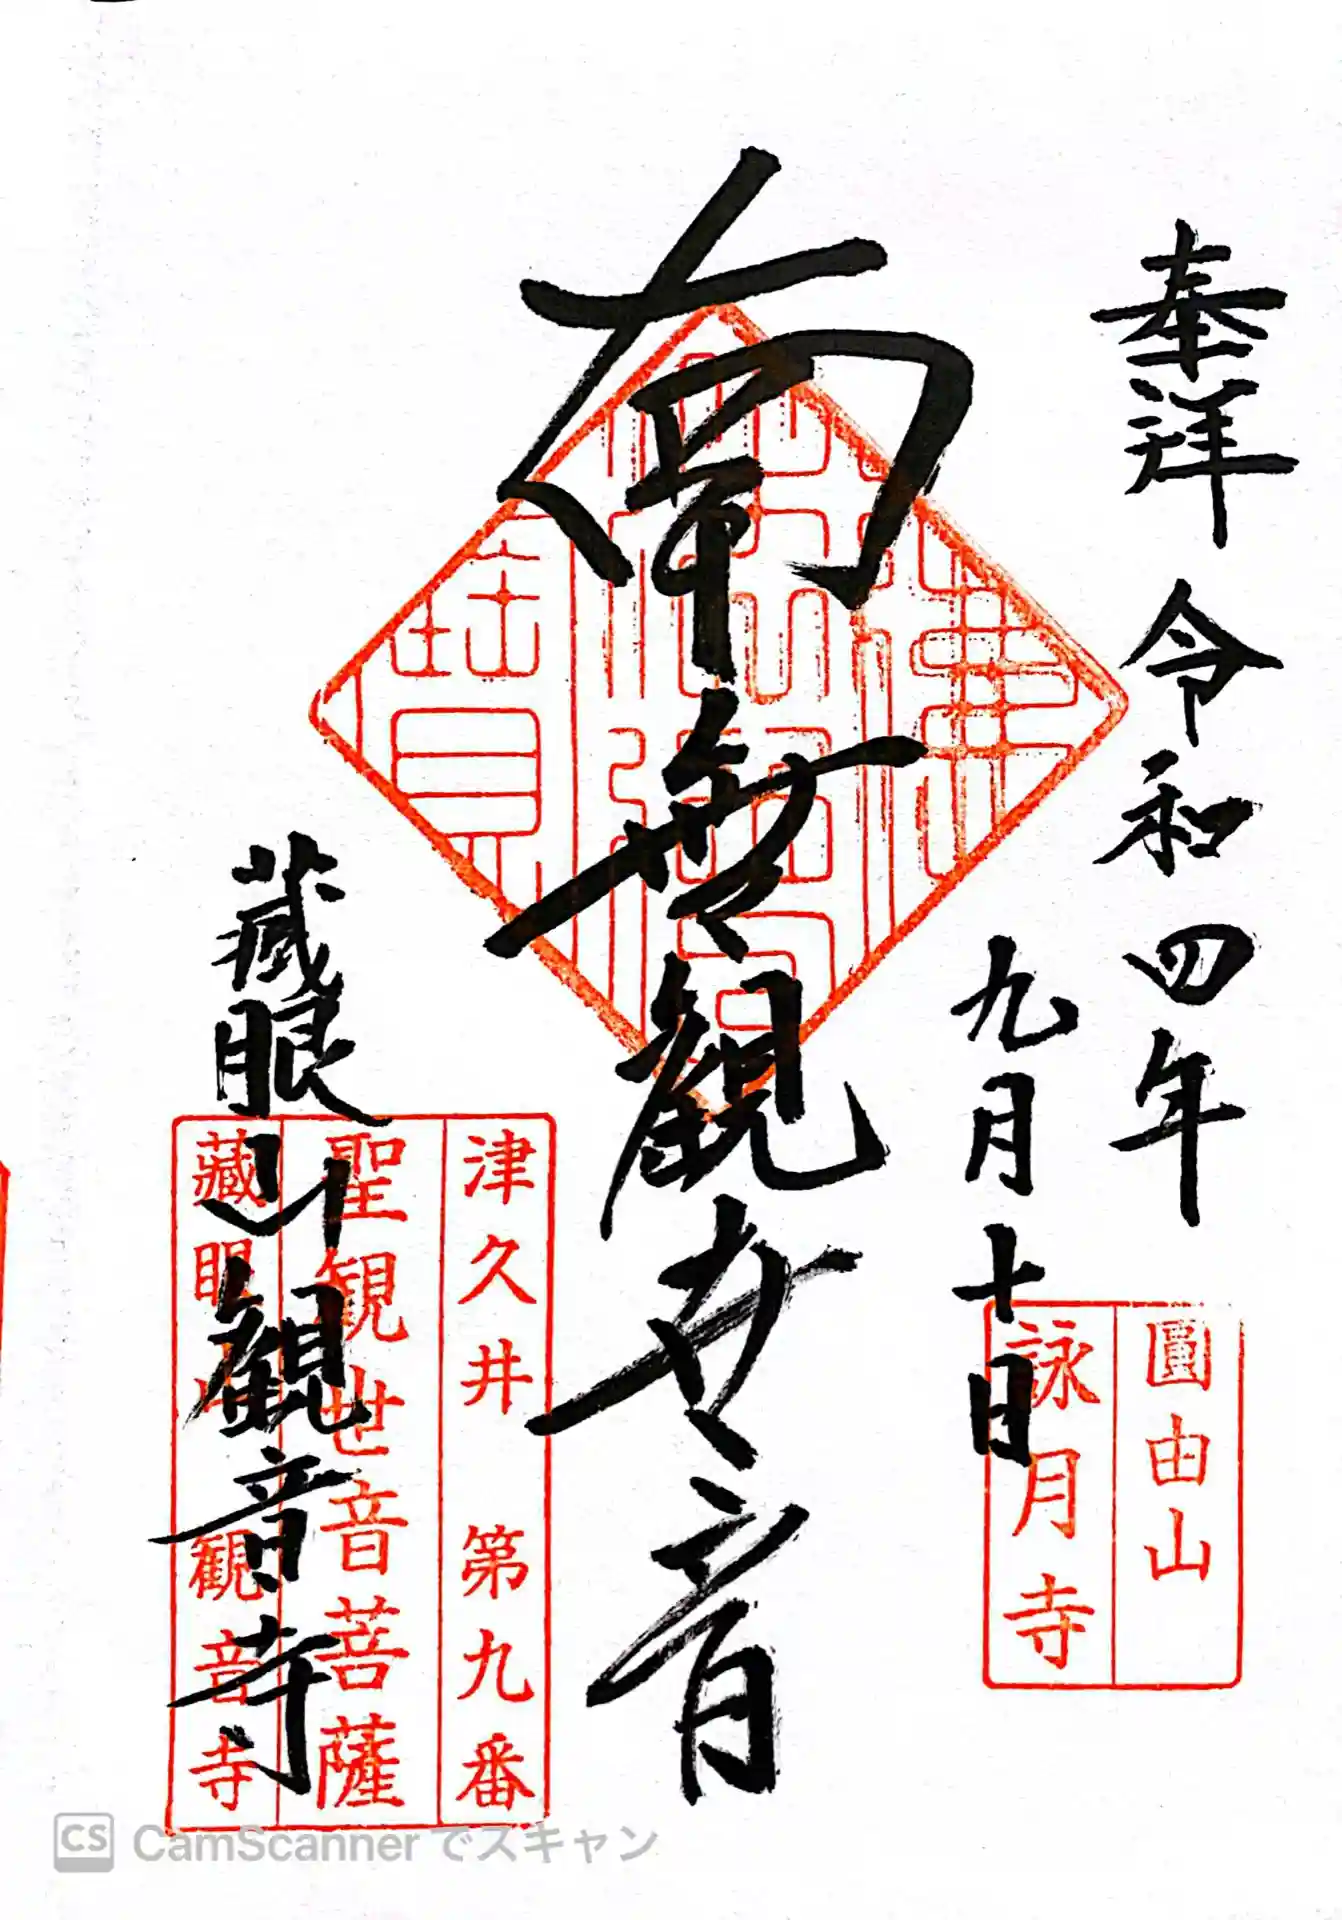 奉拝
令和四年
九月十日
圓由山
詠月寺
南無観世音
津久井 第九番
聖観世音菩薩
藏眼山観音寺
蔵眼山観音寺
CS CamScannerでスキャン